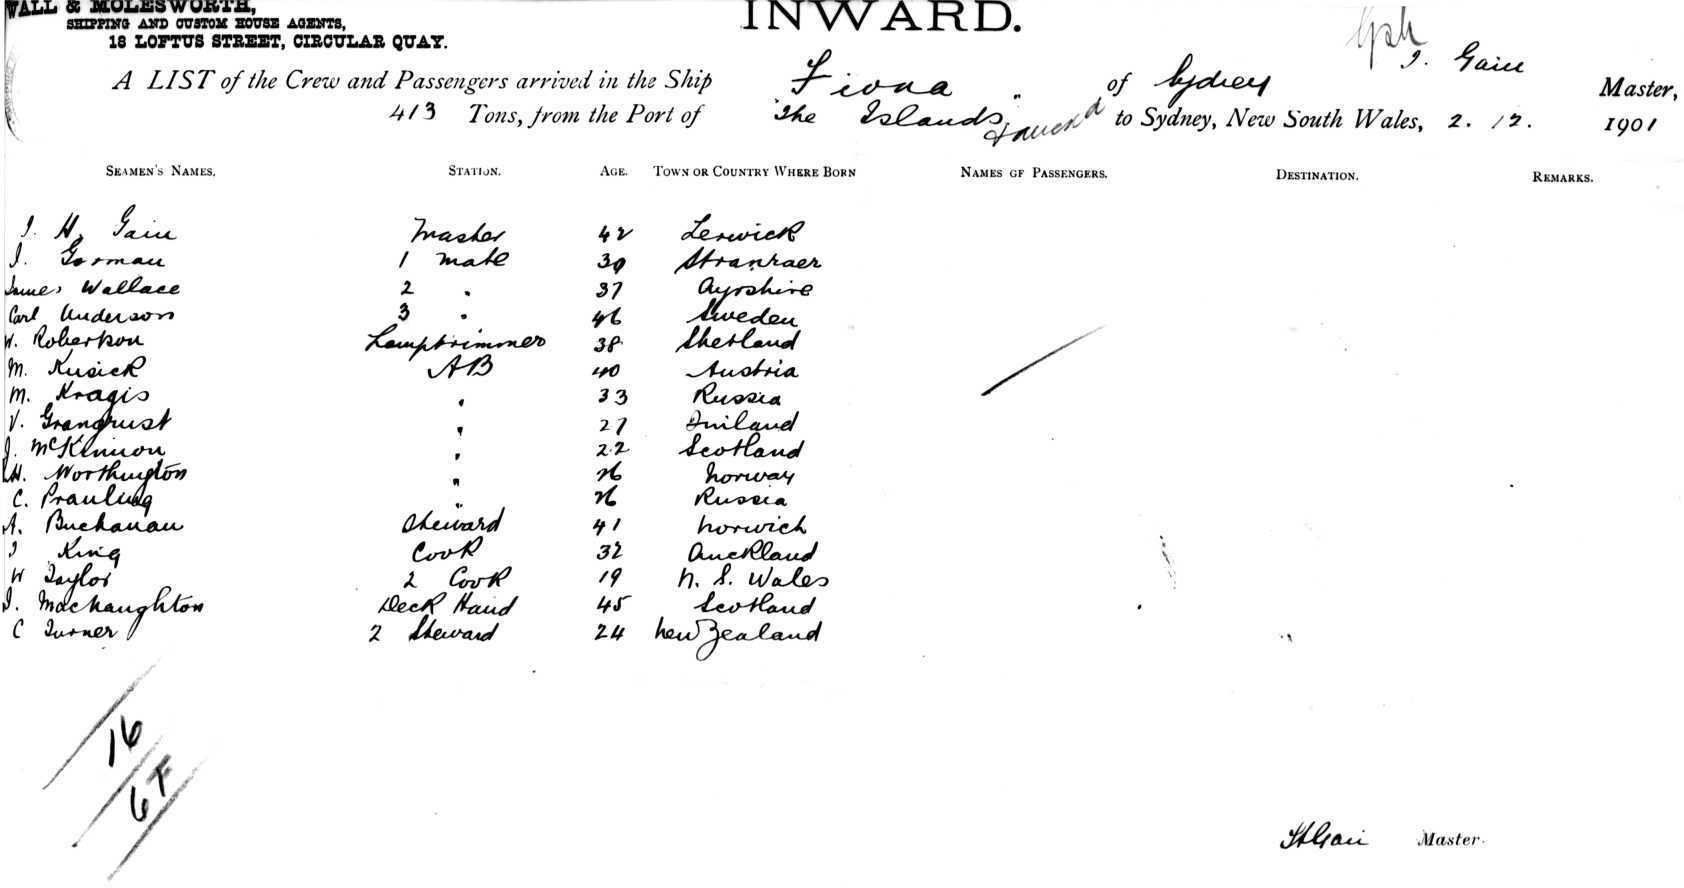 WALL & MOLESWORTH,
SHIPPING AND CUSTOM HOUSE AGENTS,
18 LOFTUS STREET, CIRCULAR QUAY.
INWARD.
A LIST of the Crew and Passengers arrived in the Ship Fiona of Sydney J. Gain Master,
413 Tons, from the Port of The Islands to Sydney, New South Wales, 2. 12. 1901
SEAMEN'S NAMES. STATION. AGE. TOWN OR COUNTRY WHERE BORN NAMES OF PASSENGERS. DESTINATION. REMARKS.
J. H. Gain Master 42 Lerwick
J. Gorman 1 Mate 30 Stranraer
James Wallace 2 " 37 Ayrshire
Carl Anderson 3 " 46 Sweden
W. Robertson Lamptrimmer 38 Shetland
M. Kusick AB 40 Austria
M. Kragis " 33 Russia
V. Granqrust " 27 Finland
J. McKinnon " 22 Scotland
H. Worthington " 26 Norway
C. Prauling " 26 Russia
A. Buchanan Steward 41 Norwich
J King Cook 32 Auckland
W Taylor 2 Cook 19 N. S. Wales
J. Macnaughton Deck Hand 45 Scotland
C Turner 2 Steward 24 New Zealand
16
6F
JHGain Master.